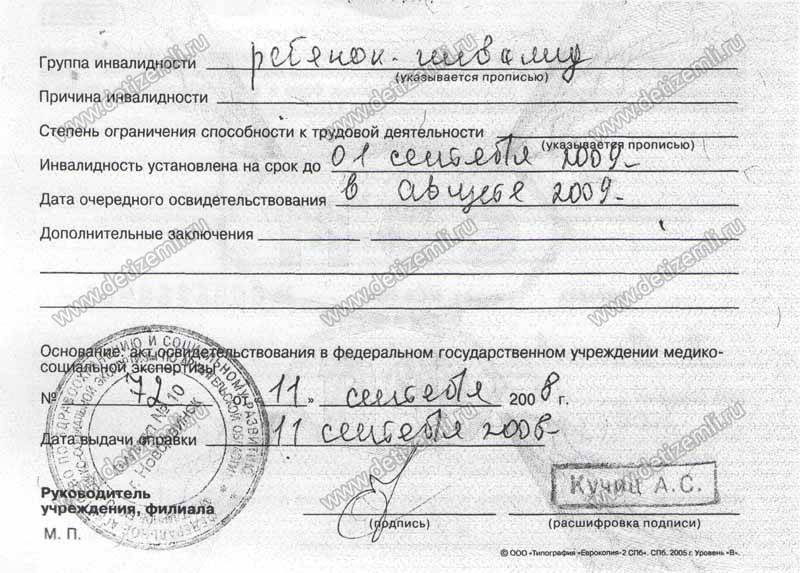 Группа инвалидности ребёнок-инвалид
(указывается прописью)
Причина инвалидности
Степень ограничения способности к трудовой деятельности
(указывается прописью)
Инвалидность установлена на срок до 01 сентября 2009-
Дата очередного освидетельствования в августе 2009-
Дополнительные заключения
Основание: акт освидетельствования в федеральном государственном учреждении медико-
социальной экспертизы
№ 72 от "11" сентября 2008 г.
Дата выдачи справки 11 сентября 2008-
Филиал № 10
г. Новодвинск
Руководитель
учреждения, филиала
Кучин А.С.
(подпись) (расшифровка подписи)
М. П.
© ООО «Типография «Еврокопия-2 СПб». СПб. 2005 г. Уровень «В».
www.detizemli.ru